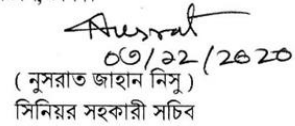 Nusrat
০৩/১২/২০২০
( নুসরাত জাহান নিসু )
সিনিয়র সহকারী সচিব